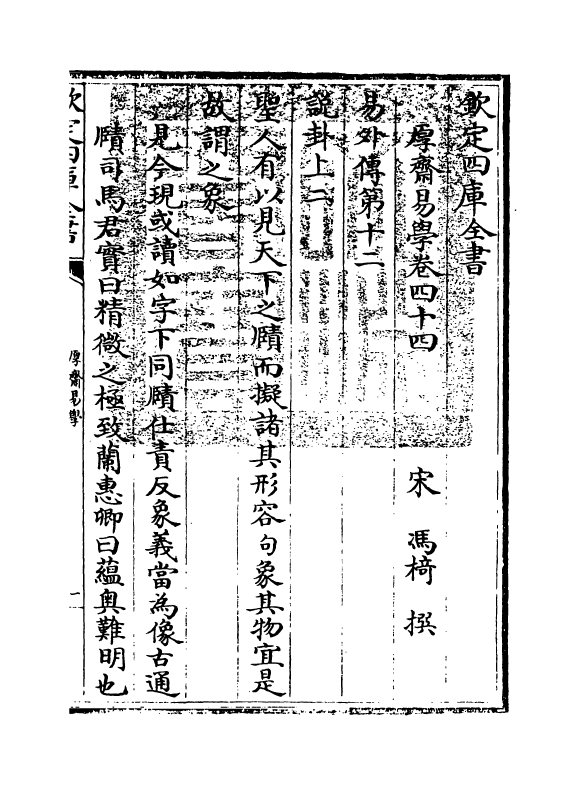 欽定四庫全書
厚齋易學卷四十四
宋 馮椅 撰
易外傳第十二
說卦上二
聖人有以見天下之賾而擬諸其形容句象其物宜是
故謂之象
見今現或讀如字下同賾仕責反象義當為像古通
賾司馬君實曰精微之極致蘭惠卿曰蘊奥難明也
欽定四庫全書
厚齋易學
一